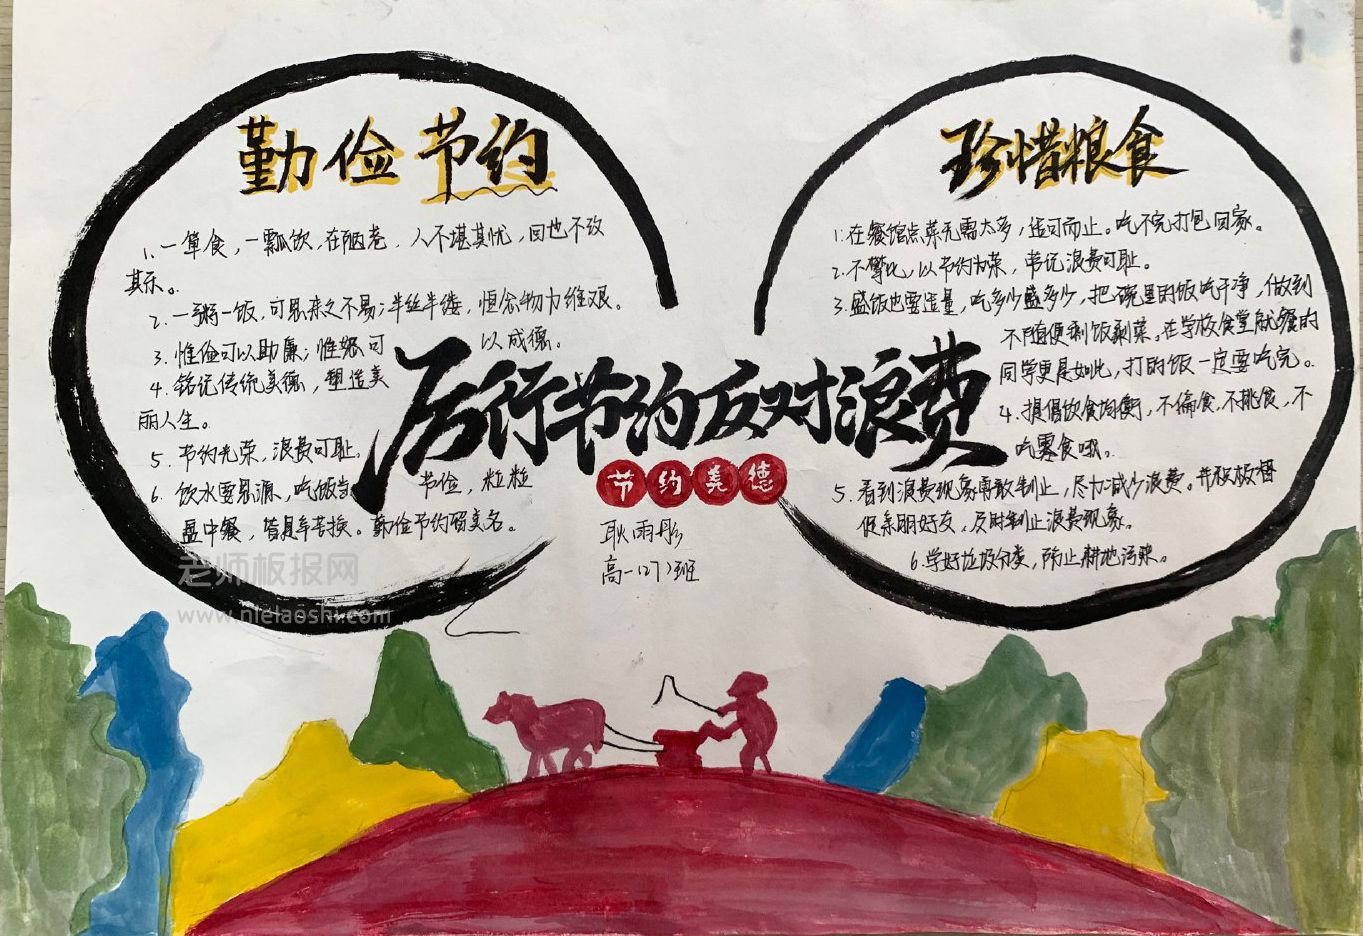 勤俭节约
1. 一箪食，一瓢饮，在陋巷，人不堪其忧，回也不改
其乐。
2. 一粥一饭，可思来之不易；半丝半缕，恒念物力维艰。
3. 惟俭可以助廉；惟恕可以成德。
4. 铭记传统美德，塑造美
丽人生。
5. 节约光荣，浪费可耻。
6. 饮水要思源，吃饭当节俭，粒粒
盘中餐，皆是辛苦换。勤俭节约留美名。
厉行节约反对浪费
节约美德
耿雨彤
高一(27)班
珍惜粮食
1. 在餐馆点菜无需太多，适可而止。吃不完打包回家。
2. 不攀比，以节约为荣，牢记浪费可耻。
3. 盛饭也要适量，吃多少盛多少，把碗里的饭吃干净，做到
不随便剩饭剩菜。在学校食堂就餐的
同学更是如此，打的饭一定要吃完。
4. 提倡饮食均衡，不偏食，不挑食，不
吃零食哦。
5. 看到浪费现象勇敢制止，尽力减少浪费。并积极督
促亲朋好友，及时制止浪费现象。
6. 学好垃圾分类，防止耕地污染。
老师板报网